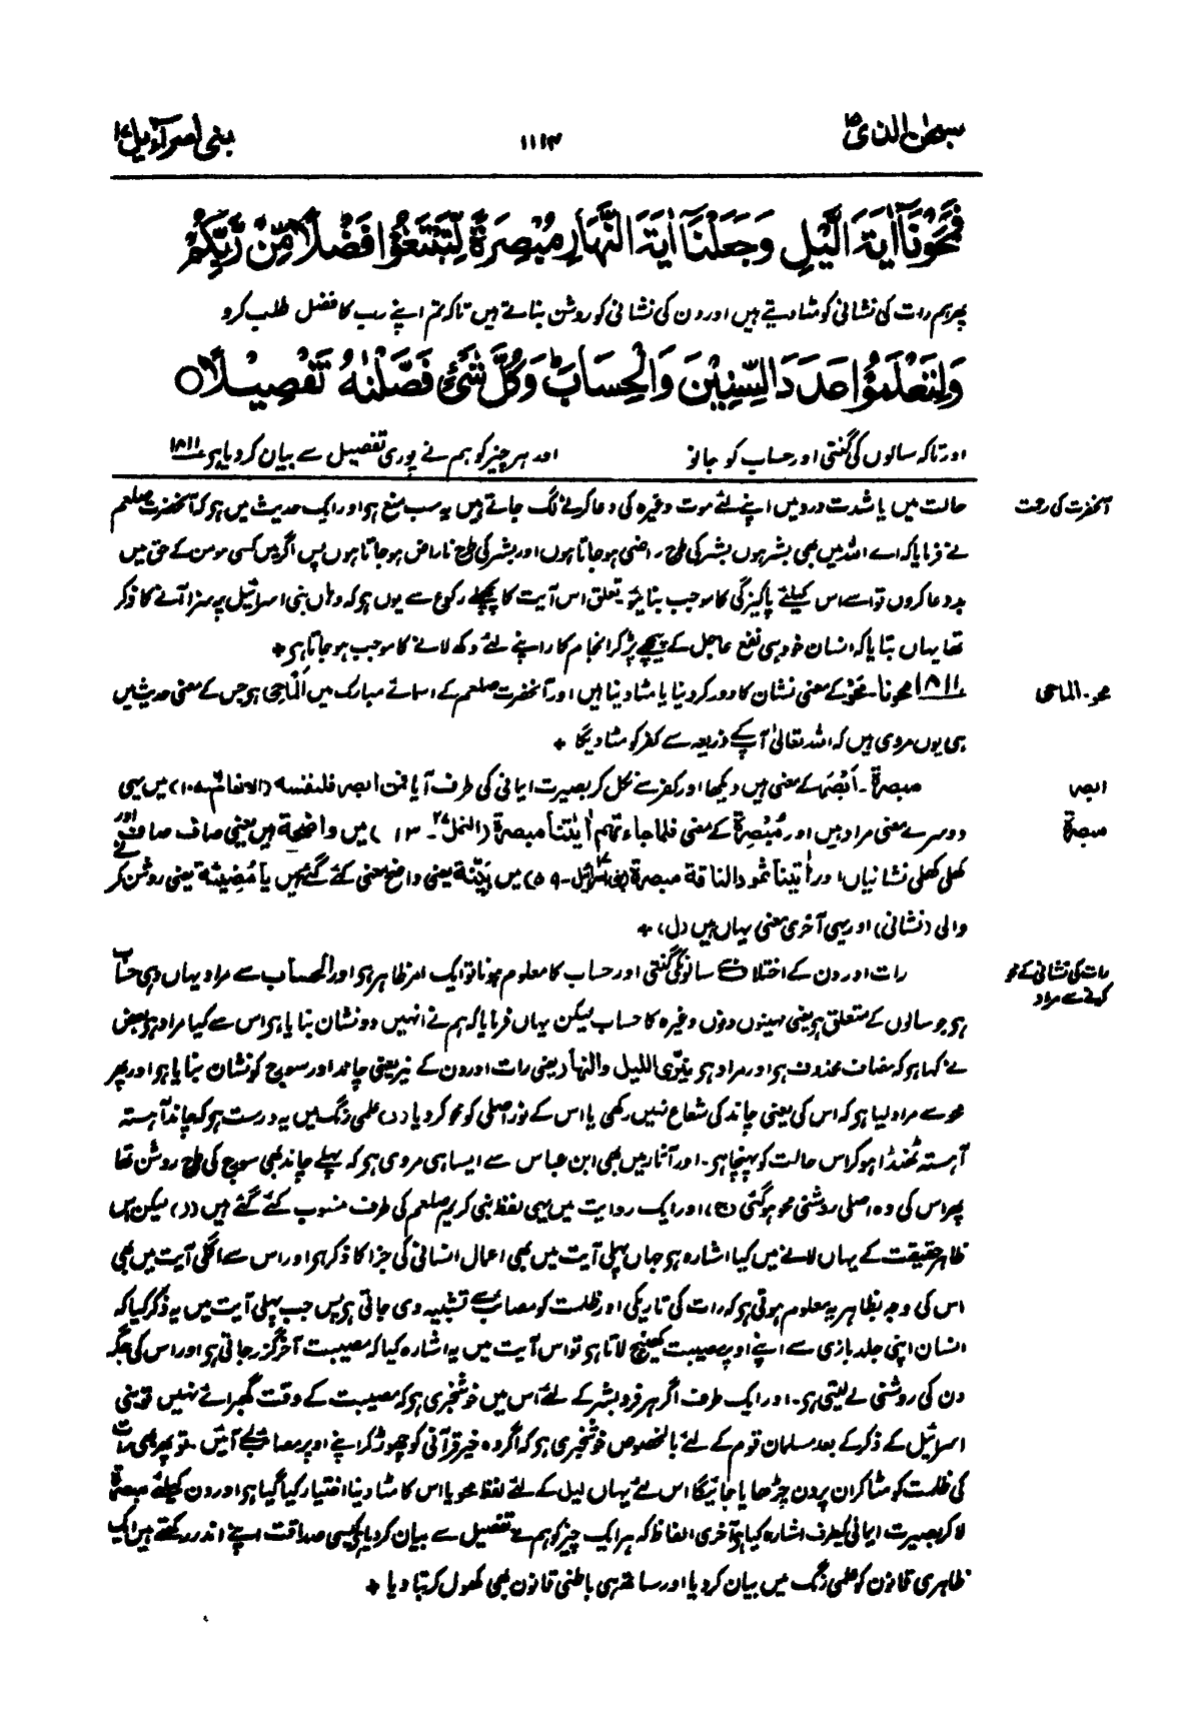 سبحٰن الذی ۱۵
۱۱۱۳
بنی اسرآءیل ۱۷
فَمَحَوْنَآ اٰیَةَ الَّیْلِ وَجَعَلْنَآ اٰیَةَ النَّهَارِ مُبْصِرَةً لِّتَبْتَغُوْا فَضْلًا مِّنْ رَّبِّكُمْ
پھر ہم رات کی نشانی کو مٹا دیتے ہیں اور دن کی نشانی کو روشن بناتے ہیں تاکہ تم اپنے رب کا فضل طلب کرو
وَلِتَعْلَمُوْا عَدَدَ السِّنِیْنَ وَالْحِسَابَ ؕ وَكُلَّ شَیْءٍ فَصَّلْنٰهُ تَفْصِیْلًا ○
اور تاکہ سالوں کی گنتی اور حساب کو جانو اور ہر چیز کو ہم نے پوری تفصیل سے بیان کر دیا ہے ۱۸۱۱
آنحضرت کی رحمت
حالت میں یا شدت درد میں اپنے لئے موت وغیرہ کی دعا کرنے لگ جاتے ہیں یہ سب منع ہے اور ایک حدیث میں ہے کہ آنحضرت صلعم
نے فرمایا کہ اے اللہ میں بھی بشر ہوں بشر کی طرح راضی ہو جاتا ہوں اور بشر کی طرح ناراض ہو جاتا ہوں پس اگر میں کسی مومن کے حق میں
بد دعا کروں تو اسے اس کیلئے پاکیزگی کا موجب بنا یو تعلق اس آیت کا پچھلے رکوع سے یوں ہے کہ وہاں بنی اسرائیل پر سزا آنے کا ذکر
تھا یہاں بتایا کہ انسان خود ہی نفع عاجل کے پیچھے پڑ کر انجام کار اپنے لئے دکھ لانے کا موجب ہو جاتا ہے +
محو۔ الماحی
۱۸۱۱ محونا۔ مَحْوٌ کے معنی نشان کا دور کر دینا یا مٹا دینا ہیں اور آنحضرت صلعم کے اسمائے مبارک میں اَلْمَاحِی ہے جس کے معنی حدیث میں
ہی یوں مروی ہیں کہ اللہ تعالیٰ آپ کے ذریعہ سے کفر کو مٹا دیگا +
ابصر
مبصرة۔ اَبْصَرَ کے معنی ہیں دیکھا اور کفر سے نکل کر بصیرت ایمانی کی طرف آیا فمن ابصر فلنفسه (الانعام ۶۔۱۰۵) میں یہی
مبصرة
دوسرے معنی مراد ہیں اور مُبْصِرَةٌ کے معنی فلما جاءتهم اٰیٰتنا مبصرة (النمل ۲۷۔۱۳) میں واضحة ہیں یعنی صاف صاف اور
کھلی کھلی نشانیاں اور اٰتینا ثمود الناقة مبصرة (بنی اسرائیل۔۵۹) میں بَیِّنَة یعنی واضح معنی کئے گئے ہیں یا مُضِیْئَة یعنی روشن کرنے
والی (نشانی) اور یہی آخری معنی یہاں ہیں (ل) +
رات کی نشانی کے محو
کرنے سے مراد
رات اور دن کے اختلاف سے سالونکی گنتی اور حساب کا معلوم ہونا تو ایک امر ظاہر ہے اور الحساب سے مراد یہاں وہی حساب
ہے جو سالوں کے متعلق ہے یعنی مہینوں دنوں وغیرہ کا حساب لیکن یہاں فرمایا کہ ہم نے انہیں دو نشان بنایا ہے اس سے کیا مراد ہے بعض
نے کہا ہے کہ مضاف محذوف ہے اور مراد ہے نَیِّرَی اللیل والنهار یعنی رات اور دن کے نیر یعنی چاند اور سورج کو نشان بنایا ہے اور پھر
محو سے مراد لیا ہے کہ اس کی یعنی چاند کی شعاع نہیں رکھی یا اس کے نور اصلی کو محو کر دیا (د) علمی رنگ میں یہ درست ہے کہ چاند آہستہ
آہستہ ٹھنڈا ہو کر اس حالت کو پہنچا ہے۔ اور آثار میں بھی ابن عباس سے ایسا ہی مروی ہے کہ پہلے چاند بھی سورج کی طرح روشن تھا
پھر اس کی وہ اصلی روشنی محو ہوگئی (ج) اور ایک روایت میں یہی لفظ نبی کریم صلعم کی طرف منسوب کئے گئے ہیں (د) لیکن اس
ظاہر حقیقت کے یہاں لانے میں کیا اشارہ ہے جہاں پہلی آیت میں بھی اعمال انسانی کی جزا کا ذکر ہے اور اس سے اگلی آیت میں بھی
اس کی وجہ بظاہر یہ معلوم ہوتی ہے کہ رات کی تاریکی اور ظلمت کو مصائب سے تشبیہ دی جاتی ہے پس جب پہلی آیت میں یہ ذکر کیا کہ
انسان اپنی جلد بازی سے اپنے اوپر مصیبت کھینچ لاتا ہے تو اس آیت میں یہ اشارہ کیا کہ مصیبت آخر گزر جاتی ہے اور اس کی جگہ
دن کی روشنی لے لیتی ہے۔ اور ایک طرف اگر ہر فرد بشر کے لئے اس میں خوشخبری ہے کہ مصیبت کے وقت گھبرائے نہیں تو بنی
اسرائیل کے ذکر کے بعد مسلمان قوم کے لئے بالخصوص خوشخبری ہے کہ اگر وہ خیر قرآنی کو چھوڑ کر اپنے اوپر مصائب لے آئیں۔ تو پھر بھی رات
کی ظلمت کو مٹا کر ان پر دن چڑھایا جائیگا اس لئے یہاں لیل کے لئے لفظ محو یا اس کا مٹا دینا اختیار کیا گیا ہے اور دن کیلئے مبصرة
لا کر بصیرت ایمانی کیطرف اشارہ کیا ہے آخری الفاظ کہ ہر ایک چیز کو ہم نے تفصیل سے بیان کر دیا ہے کیسی صداقت اپنے اندر رکھتے ہیں ایک
ظاہری قانون کو علمی رنگ میں بیان کر دیا اور ساتھ ہی باطنی قانون بھی کھول کر بتا دیا +